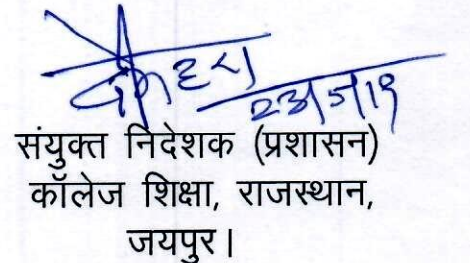 23/5/19
संयुक्त निदेशक (प्रशासन)
कॉलेज शिक्षा, राजस्थान,
जयपुर।